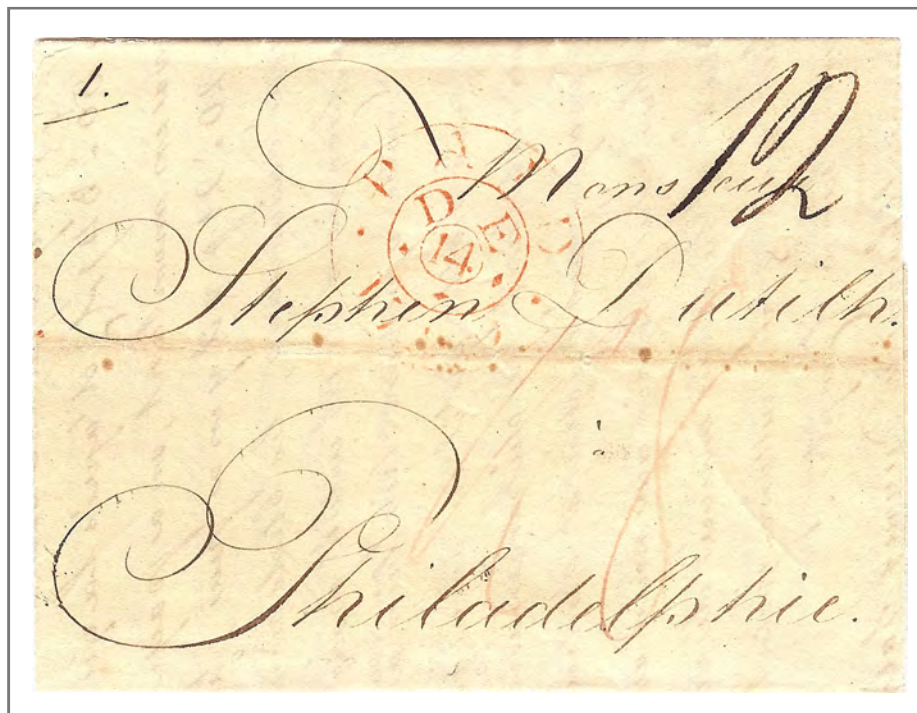 1.
12
Monsieur
Stephen Dutilh.
Philadelphie.
DE
14